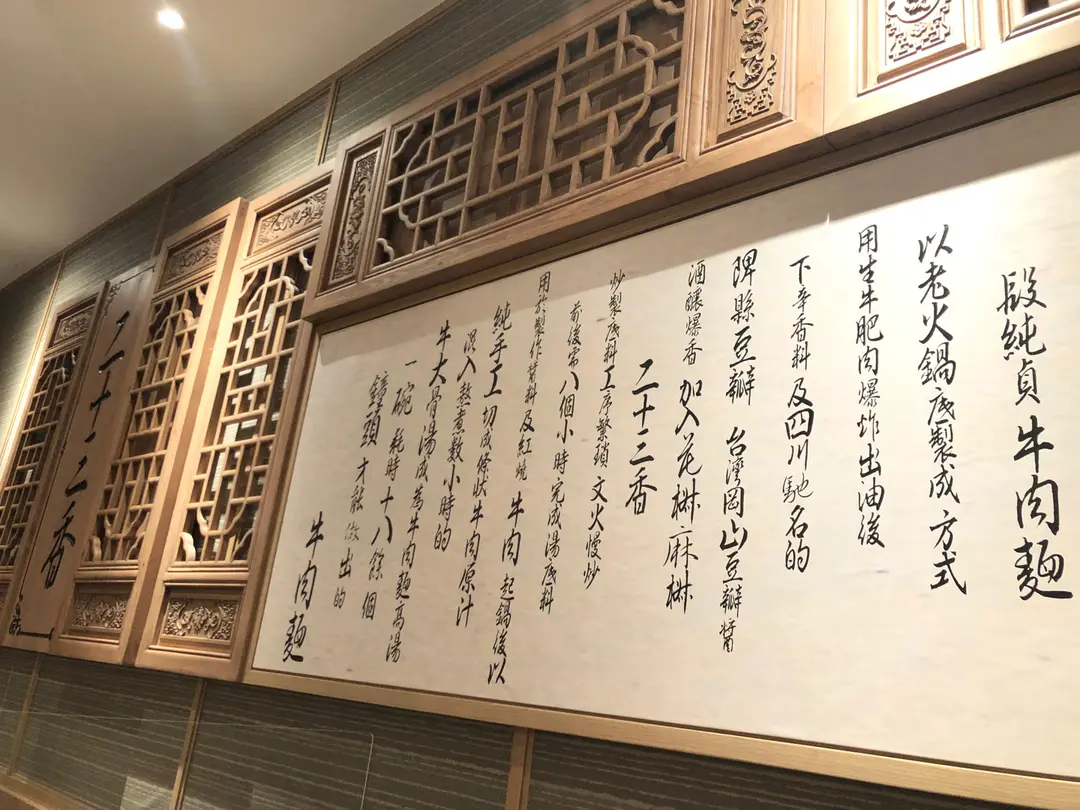 段純貞牛肉麵
以老火鍋底製成方式
用生牛肥肉爆炸出油後
下辛香料及四川馳名的
郫縣豆瓣 台灣岡山豆瓣醬
酒釀爆香 加入花椒麻椒
二十二香
炒製底料工序繁瑣 文火慢炒
前後需八個小時完成湯底料
用於製作醬料及紅燒牛肉 起鍋後以
純手工切成條狀牛肉原汁
混入熬煮數小時的
牛大骨湯成為牛肉麵高湯
一碗耗時十八餘個
鐘頭才能做出的
牛肉麵
二十二香